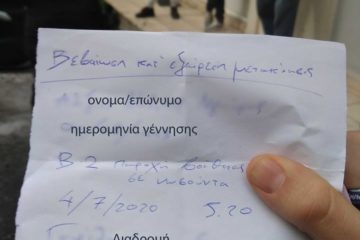 Βεβαίωση κατ' εξαίρεση μετακίνησης
ονομα/επώνυμο
ημερομηνία γέννησης
Β2 παροχή βοήθειας
σε
4/7/2020 5.20
Διαδρομή